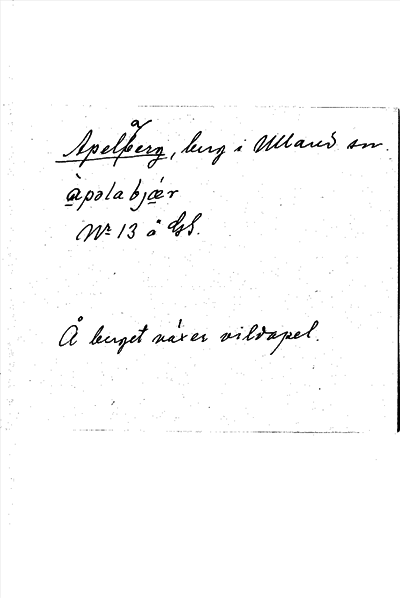 Apelaberg, berg i Ullared sn.
àpəlabjæ̀r
Nr 13 å GS.
Å berget växer vildapel.